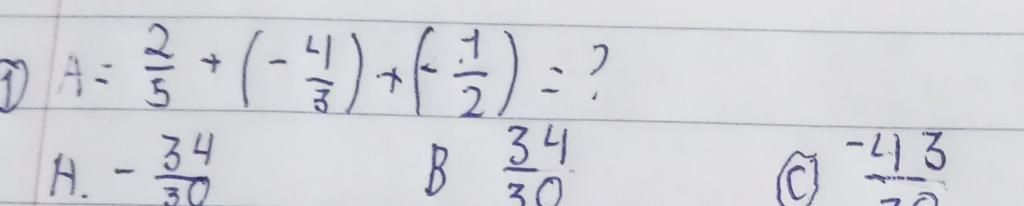 1) A = 2/5 + (- 4/3) + (- 1/2) = ?
A. - 34/30 B 34/30 C -43/30